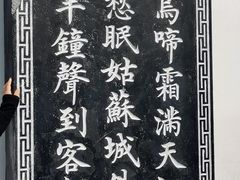 烏啼霜滿天
愁眠姑蘇城
半鐘聲到客